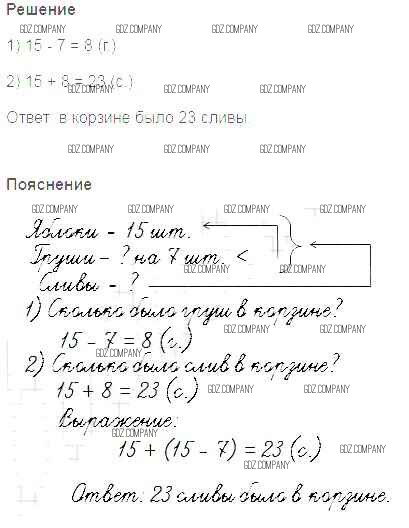 Решение
GDZ.COMPANY GDZ.COMPANY GDZ.COMPANY GDZ.COMPANY
1) 15 - 7 = 8 (г.)
2) 15 + 8 = 23 (с.)
GDZ.COMPANY GDZ.COMPANY GDZ.COMPANY
Ответ в корзине было 23 сливы
GDZ.COMPANY GDZ.COMPANY GDZ.COMPANY
Пояснение
GDZ.COMPANY GDZ.COMPANY GDZ.COMPANY GDZ.COMPANY
Яблоки - 15 шт.
Груши - ? на 7 шт. <
GDZ.COMPANY GDZ.COMPANY
Сливы - ?
1) Сколько было груш в корзине?
15 - 7 = 8 (г.)
GDZ.COMPANY
2) Сколько было слив в корзине?
15 + 8 = 23 (с.)
GDZ.COMPANY GDZ.COMPANY
Выражение:
GDZ.COMPANY
15 + (15 - 7) = 23 (с.)
GDZ.COMPANY
GDZ.COMPANY
Ответ: 23 сливы было в корзине.